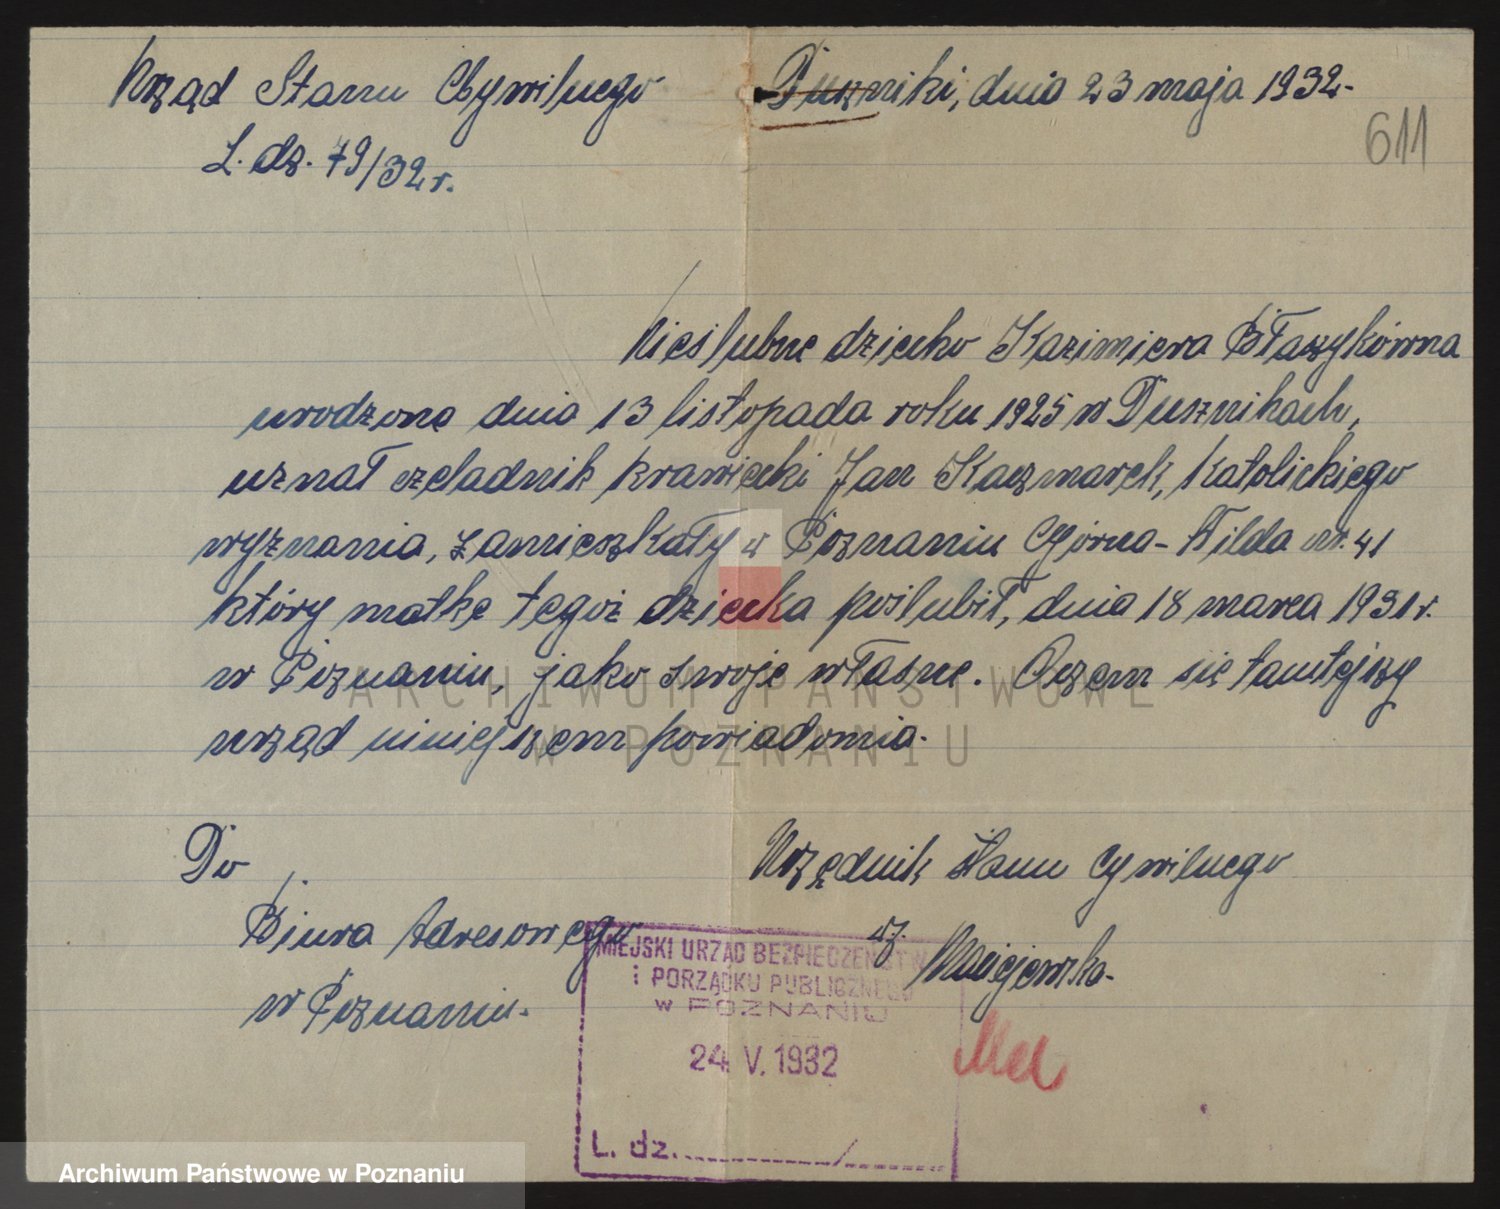 Urząd Stanu Cywilnego
Duszniki, dnia 23 maja 1932.
L. dz. 79/32 r.
611
Nieślubne dziecko Kazimiera Błaszykówna
urodzone dnia 13 listopada roku 1925 w Dusznikach,
uznał czeladnik krawiecki Jan Kaczmarek, katolickiego
wyznania, zamieszkały w Poznaniu Górna-Wilda nr. 41
który matkę tegoż dziecka poślubił, dnia 18 marca 1931 r.
w Poznaniu, jako swoje własne. Oczem się tamtejszy
urząd niniejszem powiadomia.
ARCHIWUM PAŃSTWOWE
W POZNANIU
Do
Biura Adresowego
w Poznaniu.
Urzędnik stanu cywilnego
wz. Maciejewska.
MIEJSKI URZĄD BEZPIECZEŃSTWA
i PORZĄDKU PUBLICZNEGO
w POZNANIU
24. V. 1932
L. dz. /
Archiwum Państwowe w Poznaniu